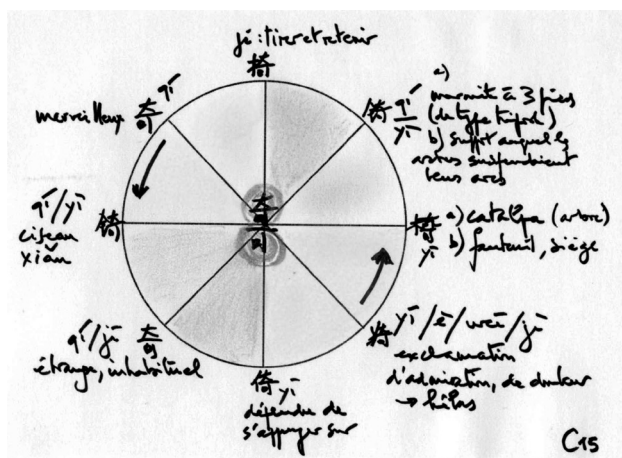 jĭ : tirer et retenir
掎
merveilleux 奇 qí
錡 qí
yĭ
a)
marmite à 3 pieds
(de type tripode)
b) support auquel les
suspendaient
leurs arcs
qí/yĭ
ciseau
奇
可
椅 a) catalpa (arbre)
yĭ b) fauteuil, siège
qí/jī 奇
étrange, inhabituel
倚 yĭ
dépendre de
s'appuyer sur
yī / ē / wēi / jī
exclamation
d'admiration, de douleur
→ hélas
C15